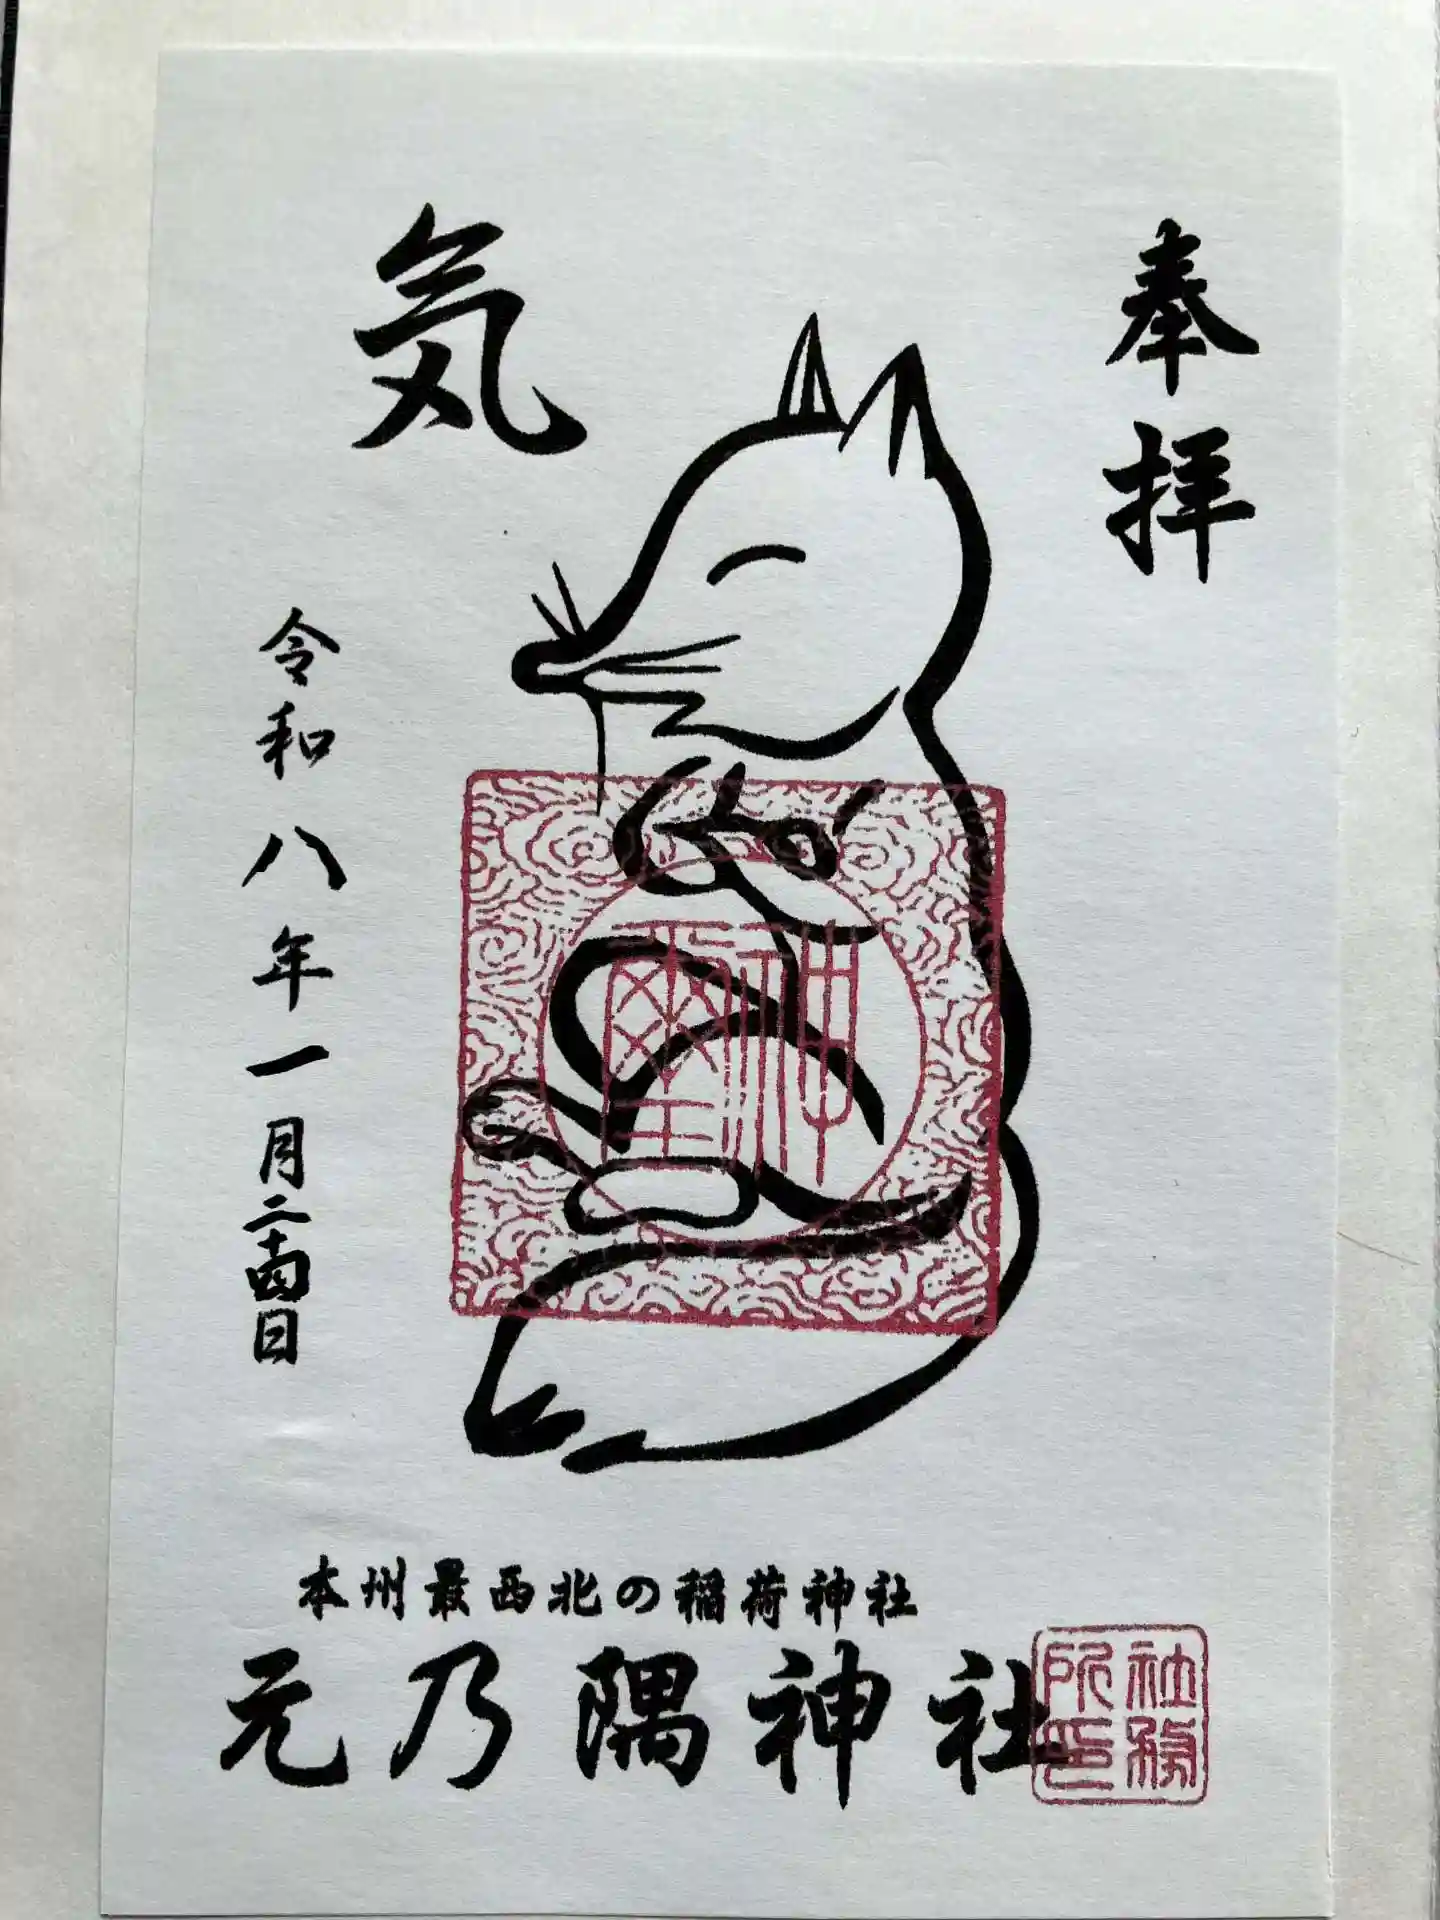 奉拝
気
令和八年一月二十四日
神璽
本州最西北の稲荷神社
元乃隅神社
社務所印